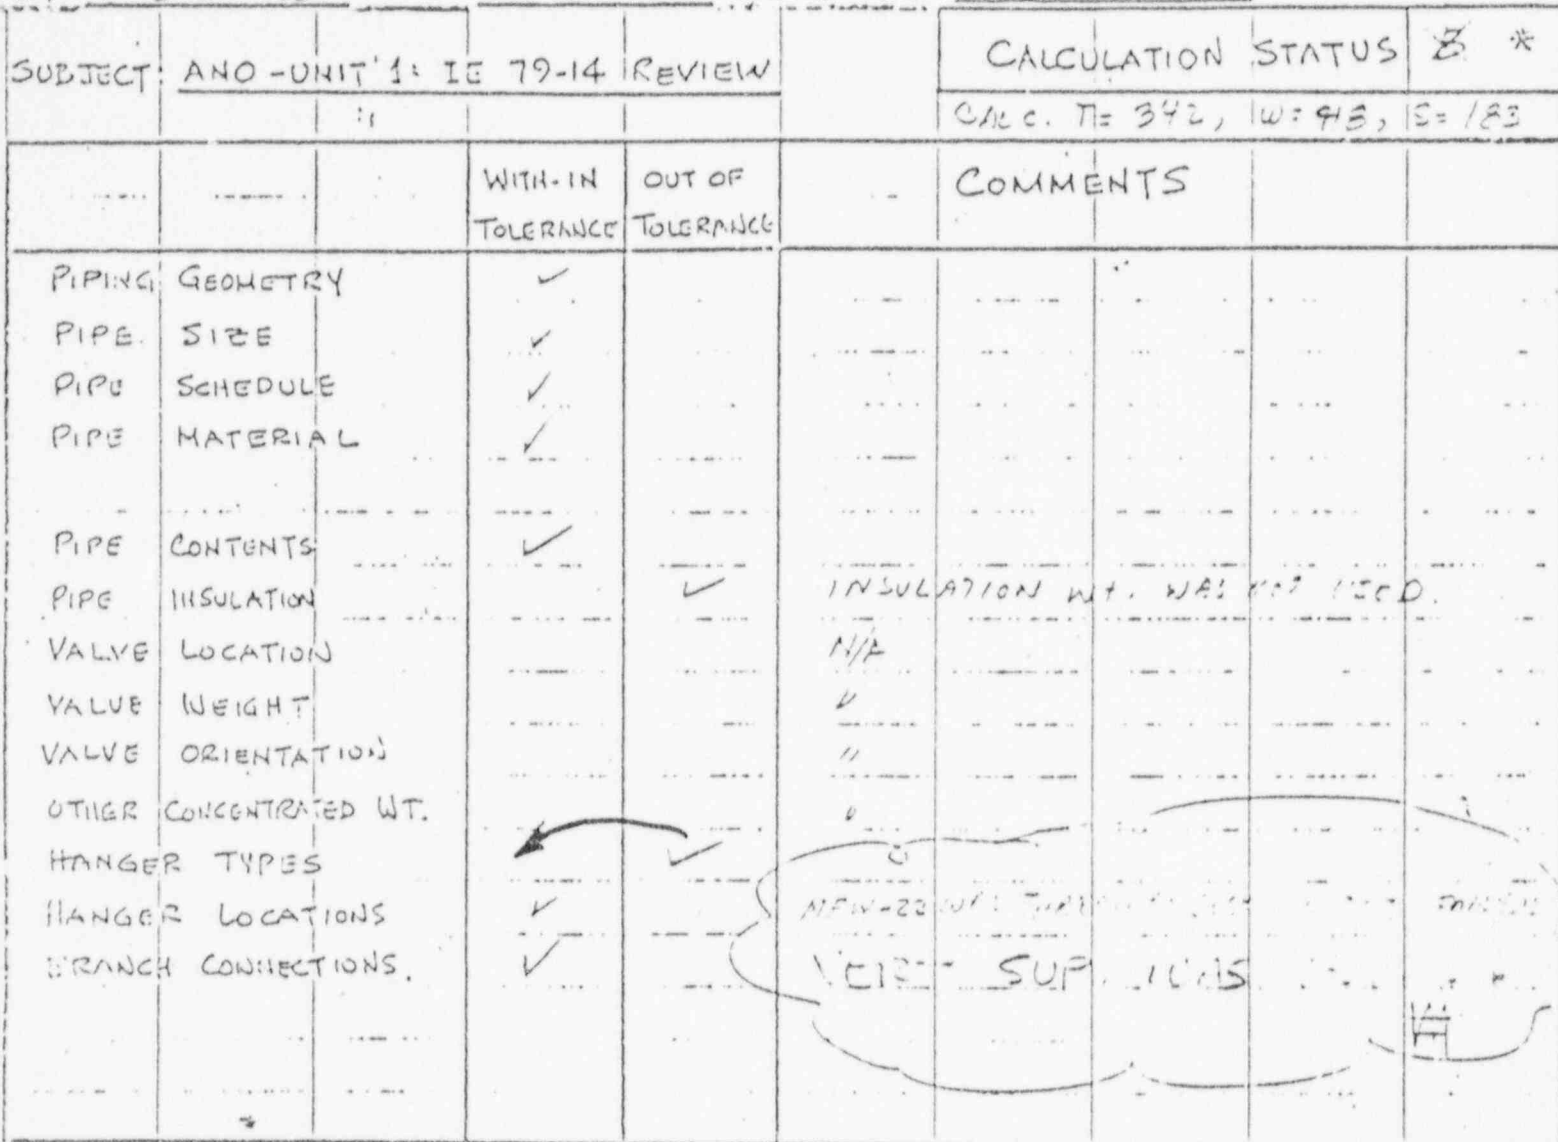 SUBJECT: ANO-UNIT 1: IE 79-14 REVIEW
CALCULATION STATUS *
CALC. T= 342, W= S= 183
WITH-IN TOLERANCE
OUT OF TOLERANCE
COMMENTS
PIPING GEOMETRY ✓
PIPE SIZE ✓
PIPE SCHEDULE ✓
PIPE MATERIAL ✓
PIPE CONTENTS ✓
PIPE INSULATION ✓ INSULATION WT. WAS
VALVE LOCATION N/A
VALVE WEIGHT "
VALVE ORIENTATION "
OTHER CONCENTRATED WT. "
HANGER TYPES ✓
HANGER LOCATIONS ✓
BRANCH CONNECTIONS. ✓